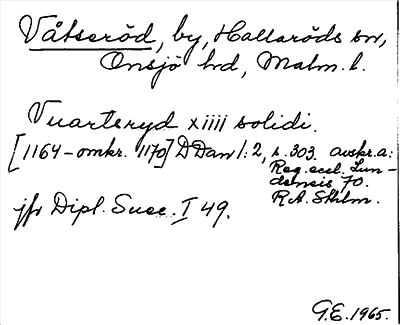 Våtseröd, by, Hallaröds sn,
Onsjö hd, Malm. l.
Vuartsryd xiiii solidi.
[1164-omkr. 1170] DDan 1:2, s. 303. avskr. a:
Reg. eccl. Lun-
densis 70.
R.A. Sthlm.
jfr Dipl. Suec. I 49.
G.E. 1965.